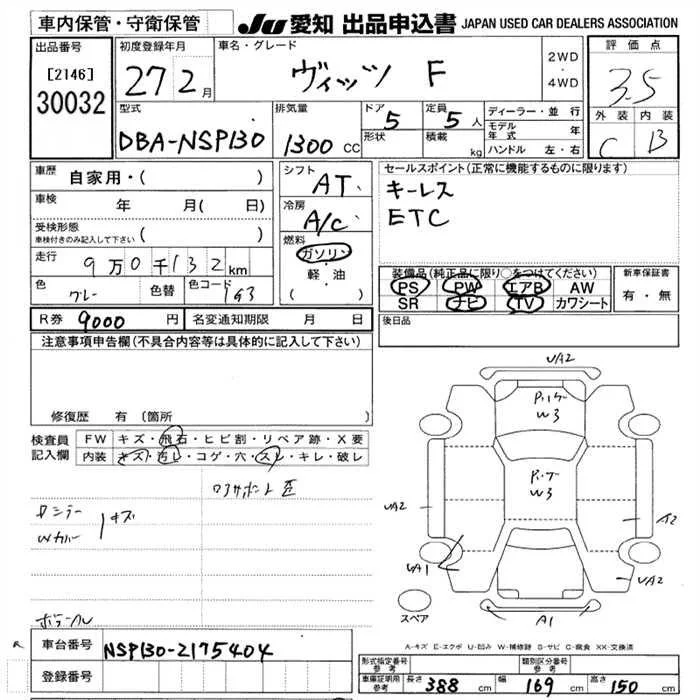 車内保管・守衛保管
JU 愛知 出品申込書 JAPAN USED CAR DEALERS ASSOCIATION
出品番号
[2146]
30032
初度登録年月
27 2月
車名・グレード
ヴィッツ F
2WD
・
4WD
評価点
3.5
外装 内装
C B
型式
DBA-NSP130
排気量
1300 CC
ドア
5
形状
定員
5人
積載
kg
ディーラー・並行
モデル年式 年
ハンドル 左・右
車歴
自家用・( )
車検 年 月( 日)
受検形態
車検付きのみ記入して下さい ( )
走行 9万0千132km
色 グレー 色替 色コード 1G3
シフト
AT
冷房
A/C
燃料
ガソリン
軽・油
セールスポイント(正常に機能するものに限ります)
キーレス
ETC
装備品(純正品に限り○をつけてください)
PS PW エアB AW
SR ナビ TV カワシート
新車保証書
有・無
R券 9000 円 名変通知期限 月 日
後日品
注意事項申告欄(不具合内容等は具体的に記入して下さい)
修復歴 有(箇所
検査員記入欄
FW キズ・飛石・ヒビ割・リペア跡・X要
内装 キズ・汚レ・コゲ・穴・スレ・キレ・破レ
Wカバー
キズ
UA2
W3
W3
UA2
A2
UA1
UA2
A1
スペア
A-キズ E-エクボ U-凹み W-補修跡 S-サビ C-腐食 XX-交換済
車台番号 NSP130-2175404
登録番号
形式指定番号 参考
類別区分番号 参考
車庫証明用参考 長さ 388 cm 幅 169 cm 高さ 150 cm